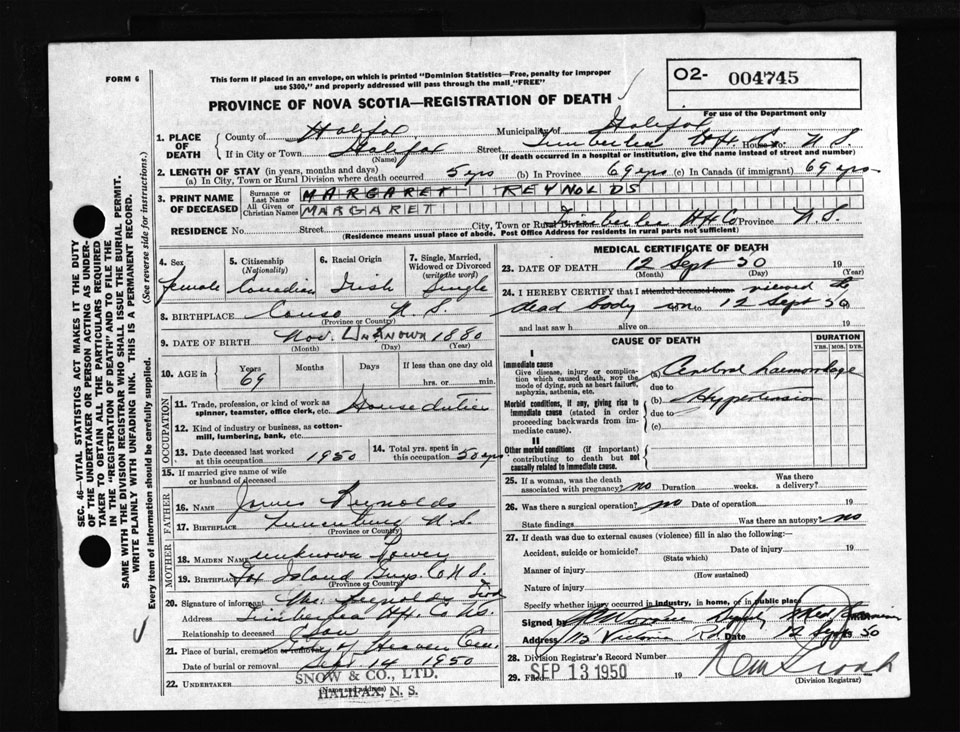 FORM 6
This form if placed in an envelope, on which is printed "Dominion Statistics—Free, penalty for improper
use $300," and properly addressed will pass through the mail "FREE"
O2- 004745
For use of the Department only
PROVINCE OF NOVA SCOTIA—REGISTRATION OF DEATH
1. PLACE OF DEATH
County of Halifax Municipality of Halifax
If in City or Town Halifax (Name) Street Timberlea Hfx. Co House No. N.S.
(If death occurred in a hospital or institution, give the name instead of street and number)
2. LENGTH OF STAY (in years, months and days)
(a) In City, Town or Rural Division where death occurred 5 yrs (b) In Province 69 yrs (c) In Canada (if immigrant) 69 yrs
3. PRINT NAME OF DECEASED
Surname or Last Name MARGARET REYNOLDS
All Given or Christian Names MARGARET
RESIDENCE No. Street City, Town or Rural Division Timberlea Hfx Co Province N.S.
(Residence means usual place of abode. Post Office Address for residents in rural parts not sufficient)
4. Sex Female
5. Citizenship (Nationality) Canadian
6. Racial Origin Irish
7. Single, Married, Widowed or Divorced (write the word) Single
8. BIRTHPLACE Canso N.S.
(Province or Country)
9. DATE OF BIRTH Nov. Unknown 1880
(Month) (Day) (Year)
10. AGE in Years 69 Months Days If less than one day old hrs. or min.
OCCUPATION
11. Trade, profession, or kind of work as spinner, teamster, office clerk, etc. House duties
12. Kind of industry or business, as cotton-mill, lumbering, bank, etc.
13. Date deceased last worked at this occupation 1950
14. Total yrs. spent in this occupation 50 yrs
15. If married give name of wife or husband of deceased
FATHER
16. Name James Reynolds
17. Birthplace Lunenburg N.S.
(Province or Country)
MOTHER
18. Maiden Name Unknown Power
19. Birthplace Fox Island Guys. Co N.S.
(Province or Country)
20. Signature of informant Reynolds
Address Timberlea Hfx. Co N.S.
Relationship to deceased Son
21. Place of burial, cremation or removal of Heaven Cem.
Date of burial or removal Sept 14 1950
22. UNDERTAKER SNOW & CO., LTD.
(Name and address)
HALIFAX, N. S.
MEDICAL CERTIFICATE OF DEATH
23. DATE OF DEATH 12 Sept 50 19
(Month) (Day) (Year)
24. I HEREBY CERTIFY that I attended deceased from viewed the
dead body on 12 Sept 50
and last saw h alive on 19
CAUSE OF DEATH
DURATION
YRS. MOS. DYS.
I
Immediate cause
Give disease, injury or complication which caused death, NOT the mode of dying, such as heart failure, asphyxia, asthenia, etc.
(a) Cerebral haemorrhage
due to
Morbid conditions, if any, giving rise to immediate cause (stated in order proceeding backwards from immediate cause).
(b) Hypertension
due to
(c)
II
Other morbid conditions (if important) contributing to death but not causally related to immediate cause.
25. If a woman, was the death associated with pregnancy? no Duration weeks. Was there a delivery?
26. Was there a surgical operation? no Date of operation 19
State findings Was there an autopsy? no
27. If death was due to external causes (violence) fill in also the following:
Accident, suicide or homicide? Date of injury 19
(State which)
Manner of injury
(How sustained)
Nature of injury
Specify whether injury occurred in industry, in home, or in public place
Signed by Deputy Med Examiner
Address 75 Victoria Rd Date 12 Sept 50
28. Division Registrar's Record Number
29. Filed SEP 13 1950 19
(Division Registrar)
SEC. 46—VITAL STATISTICS ACT MAKES IT THE DUTY
OF THE UNDERTAKER OR PERSON ACTING AS UNDER-
TAKER TO OBTAIN ALL THE PARTICULARS REQUIRED
IN THE "REGISTRATION OF DEATH" AND TO FILE THE
SAME WITH THE DIVISION REGISTRAR WHO SHALL ISSUE THE BURIAL PERMIT.
WRITE PLAINLY WITH UNFADING INK. THIS IS A PERMANENT RECORD.
Every item of information should be carefully supplied. (See reverse side for instructions.)